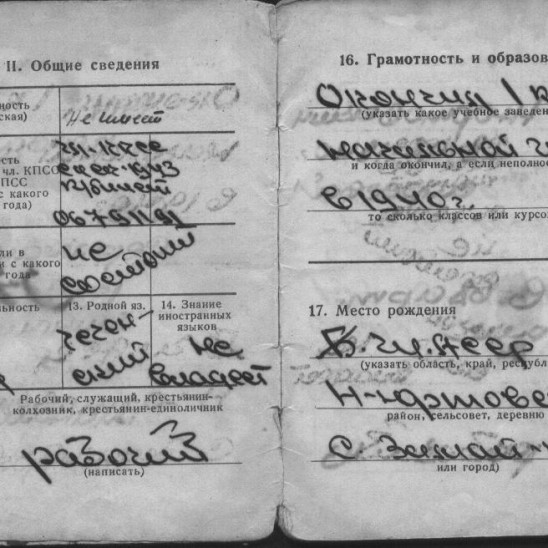 II. Общие сведения
ность
ская)
Не имеет
ость
чл. КПСС
ПСС
с какого
года)
чл. КПСС
билет
ли в
и с какого
года
не
состоял
льность
13. Родной яз.
чечен-
ский
14. Знание
иностранных
языков
Не
владеет
Рабочий, служащий, крестьянин-
колхозник, крестьянин-единоличник
рабочий
(написать)
16. Грамотность и образов
Окончил 1
(указать какое учебное заведен
начальной
и когда окончил, а если неполнос
в 1940 г.
то сколько классов или курсо
17. Место рождения
(указать область, край, республ
Н-Юртовс
район, сельсовет, деревню
с.
или город)